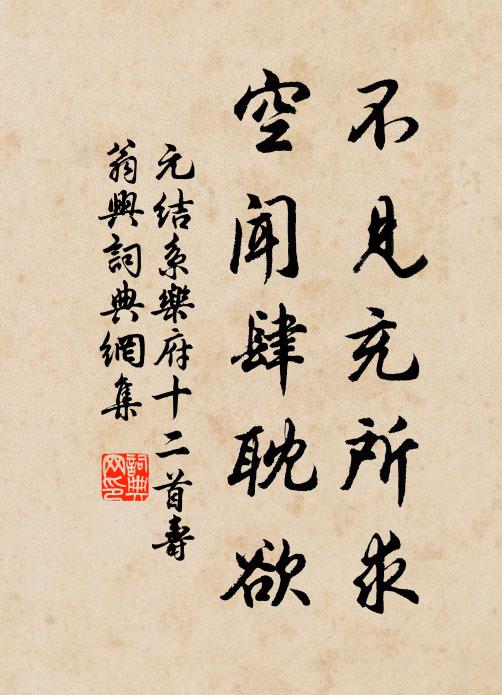 不見充所求
空聞肆耽欲
元結系樂府十二首壽
翁興詞典網集
詞典網印